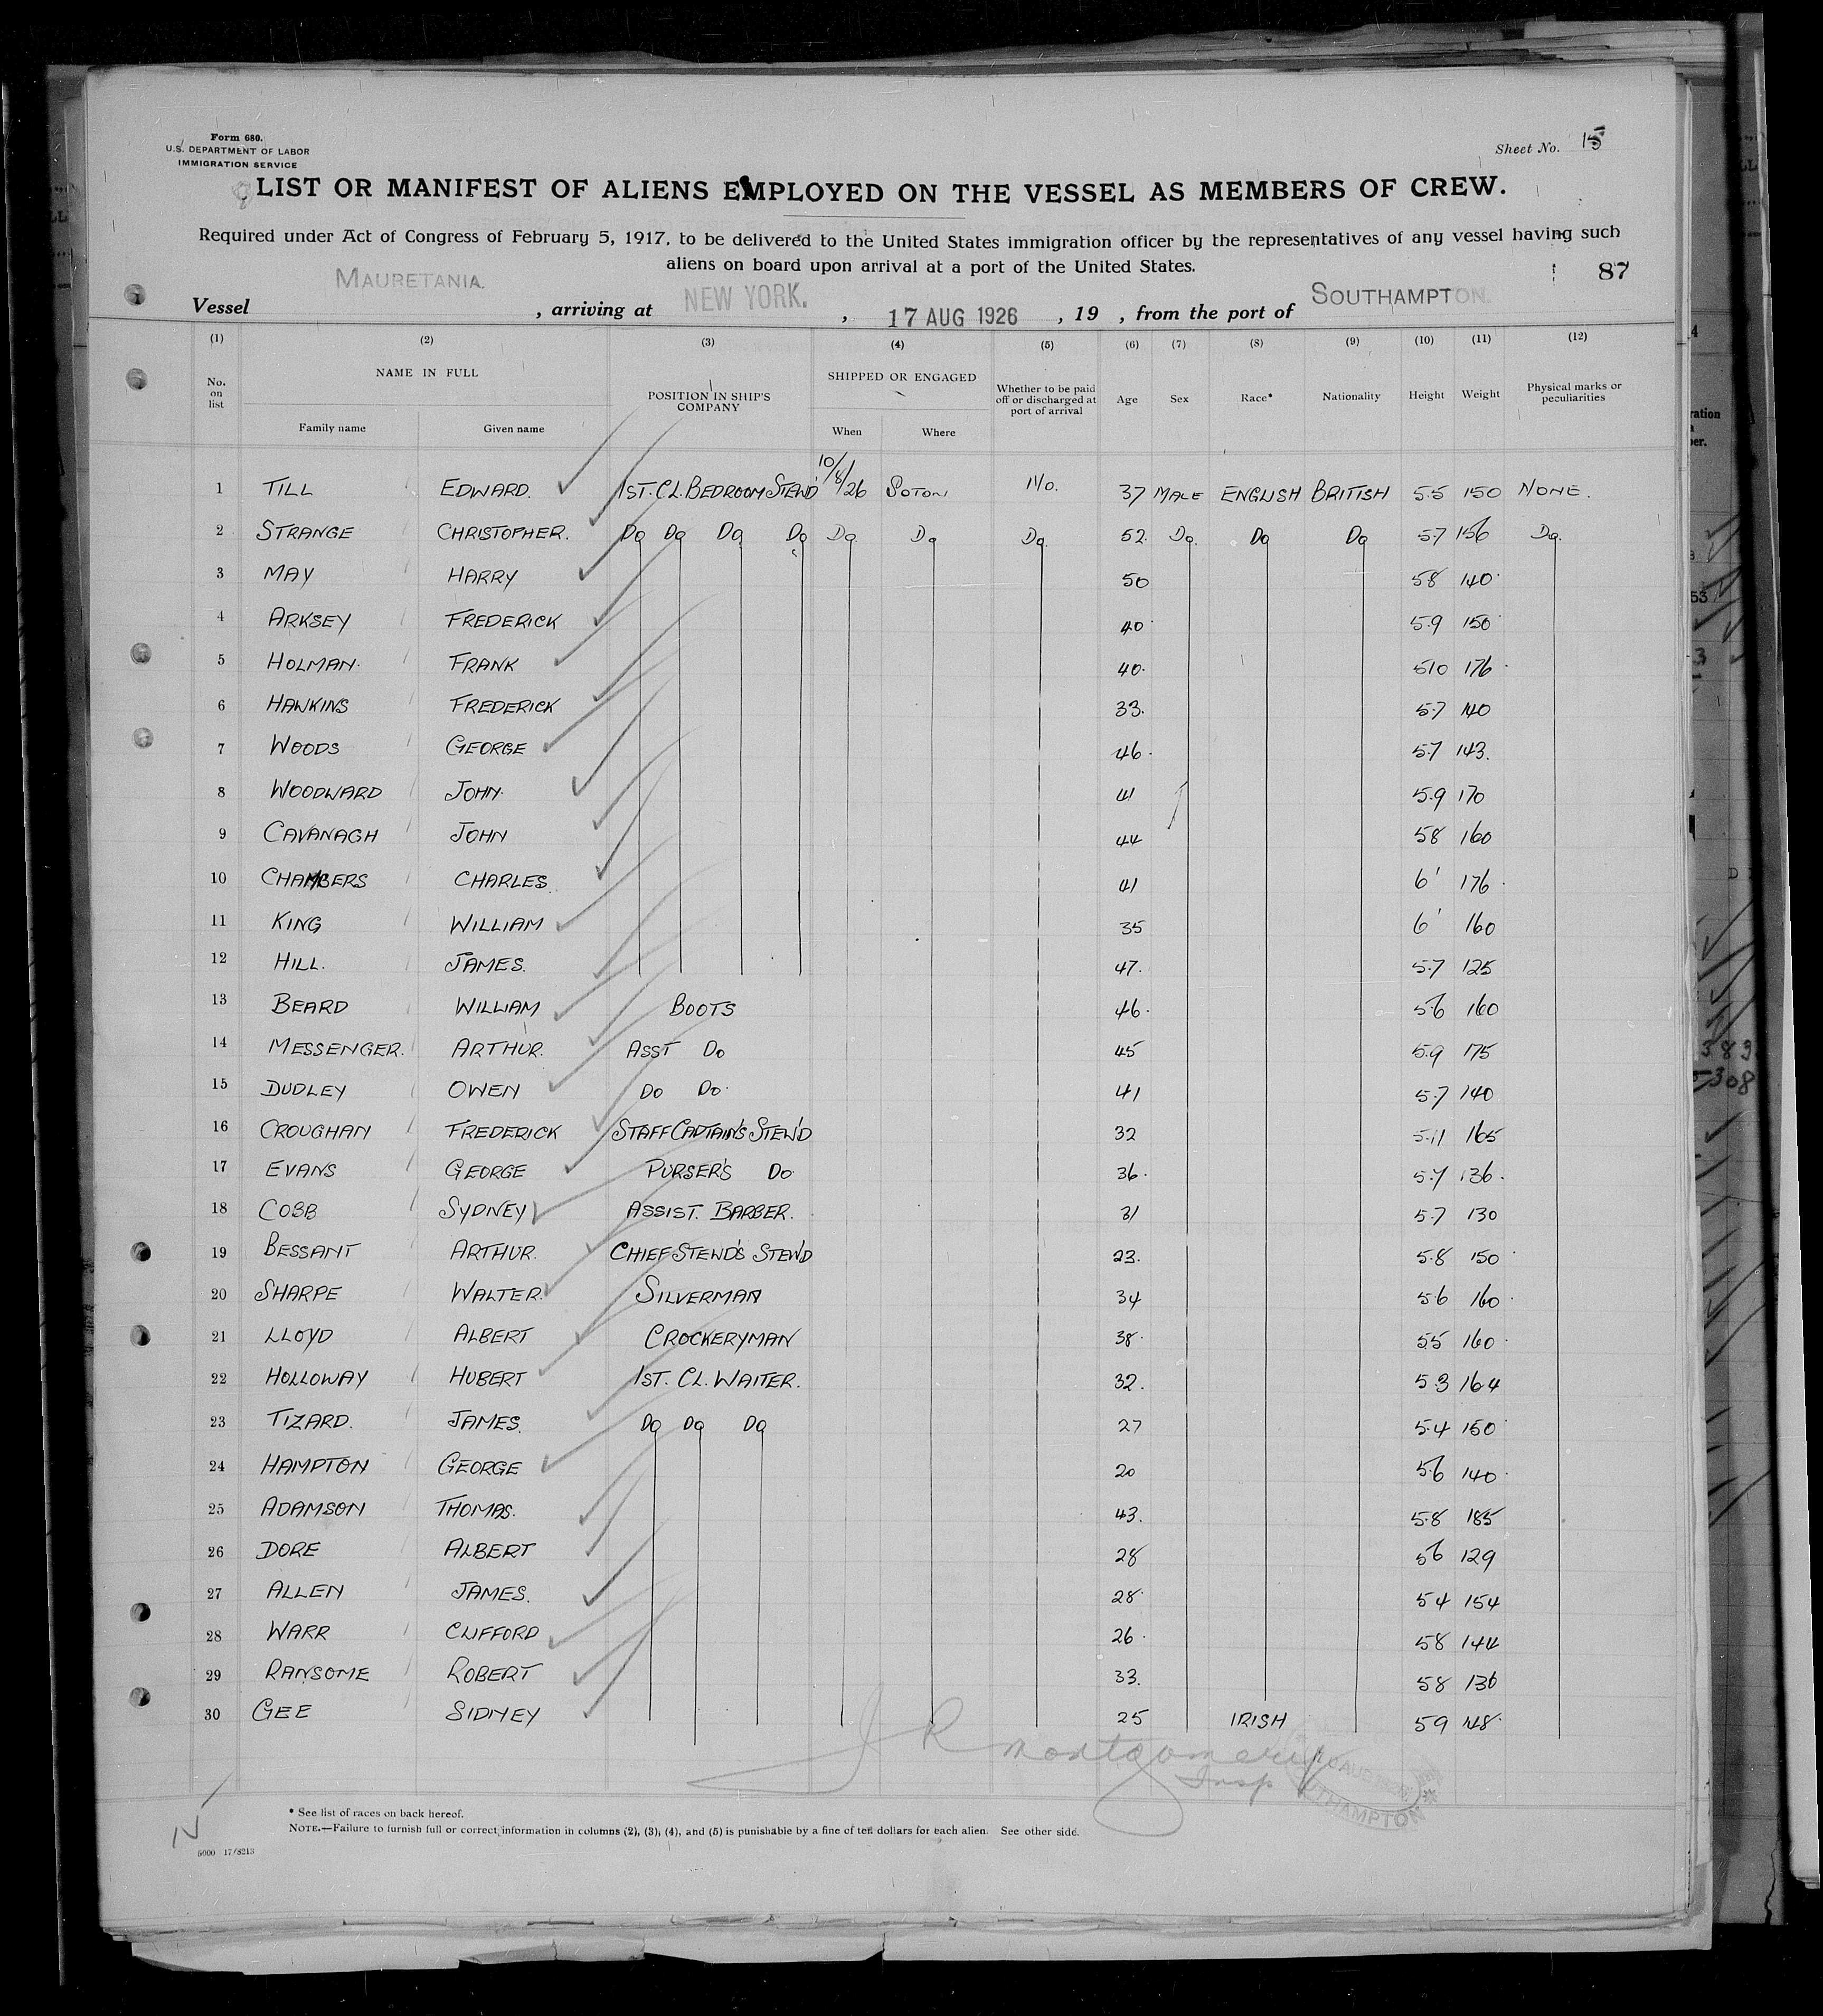 Form 680.
U.S. DEPARTMENT OF LABOR
IMMIGRATION SERVICE
Sheet No. 15
LIST OR MANIFEST OF ALIENS EMPLOYED ON THE VESSEL AS MEMBERS OF CREW.
Required under Act of Congress of February 5, 1917, to be delivered to the United States immigration officer by the representatives of any vessel having such
aliens on board upon arrival at a port of the United States.
87
Vessel MAURETANIA. , arriving at NEW YORK. , 17 AUG 1926 , 19 , from the port of SOUTHAMPTON.
(1) (2) (3) (4) (5) (6) (7) (8) (9) (10) (11) (12)
No. on list NAME IN FULL Family name Given name POSITION IN SHIP'S COMPANY SHIPPED OR ENGAGED When Where Whether to be paid off or discharged at port of arrival Age Sex Race* Nationality Height Weight Physical marks or peculiarities
1 TILL EDWARD. 1ST. CL. BEDROOM STEWD 10/8/26 SOTON 37 MALE ENGLISH BRITISH 5.5 150 NONE.
2 STRANGE CHRISTOPHER. Do Do Do Do Do Do Do. 52. Do. Do Do 5.7 156 Do.
3 MAY HARRY 50 5.8 140
4 ARKSEY FREDERICK 40 5.9 150
5 HOLMAN. FRANK 40. 510 176
6 HAWKINS FREDERICK 33. 5.7 140
7 WOODS GEORGE 46. 5.7 143.
8 WOODWARD JOHN. 41 5.9 170
9 CAVANAGH JOHN 44 58 160
10 CHAMBERS CHARLES. 41 6' 176.
11 KING WILLIAM 35 6' 160
12 HILL. JAMES. 47. 5.7 125
13 BEARD WILLIAM BOOTS 46. 5.6 160
14 MESSENGER. ARTHUR. ASST Do 45 5.9 175
15 DUDLEY OWEN Do Do. 41 5.7 140
16 CROUGHAN FREDERICK STAFF CAPTAIN'S STEW'D 32 5.11 165
17 EVANS GEORGE PURSER'S Do. 36. 5.7 136.
18 COBB SYDNEY ASSIST. BARBER. 31 5.7 130
19 BESSANT ARTHUR. CHIEF STEWD'S STEW'D 23. 5.8 150
20 SHARPE WALTER. SILVERMAN 34 5.6 160.
21 LLOYD ALBERT CROCKERYMAN 38. 5.5 160.
22 HOLLOWAY HUBERT 1ST. CL. WAITER. 32. 5.3 164
23 TIZARD. JAMES. Do Do Do 27 5.4 150
24 HAMPTON GEORGE 20 5.6 140.
25 ADAMSON THOMAS. 43. 5.8 185
26 DORE ALBERT 28 56 129
27 ALLEN JAMES. 28. 54 154
28 WARR CLIFFORD 26. 58 144
29 RANSOME ROBERT 33. 58 136
30 GEE SIDNEY 25 IRISH 59 148.
J R Montgomery
Insp
SOUTHAMPTON
* See list of races on back hereof.
NOTE.—Failure to furnish full or correct information in columns (2), (3), (4), and (5) is punishable by a fine of ten dollars for each alien. See other side.
5000 17/8213